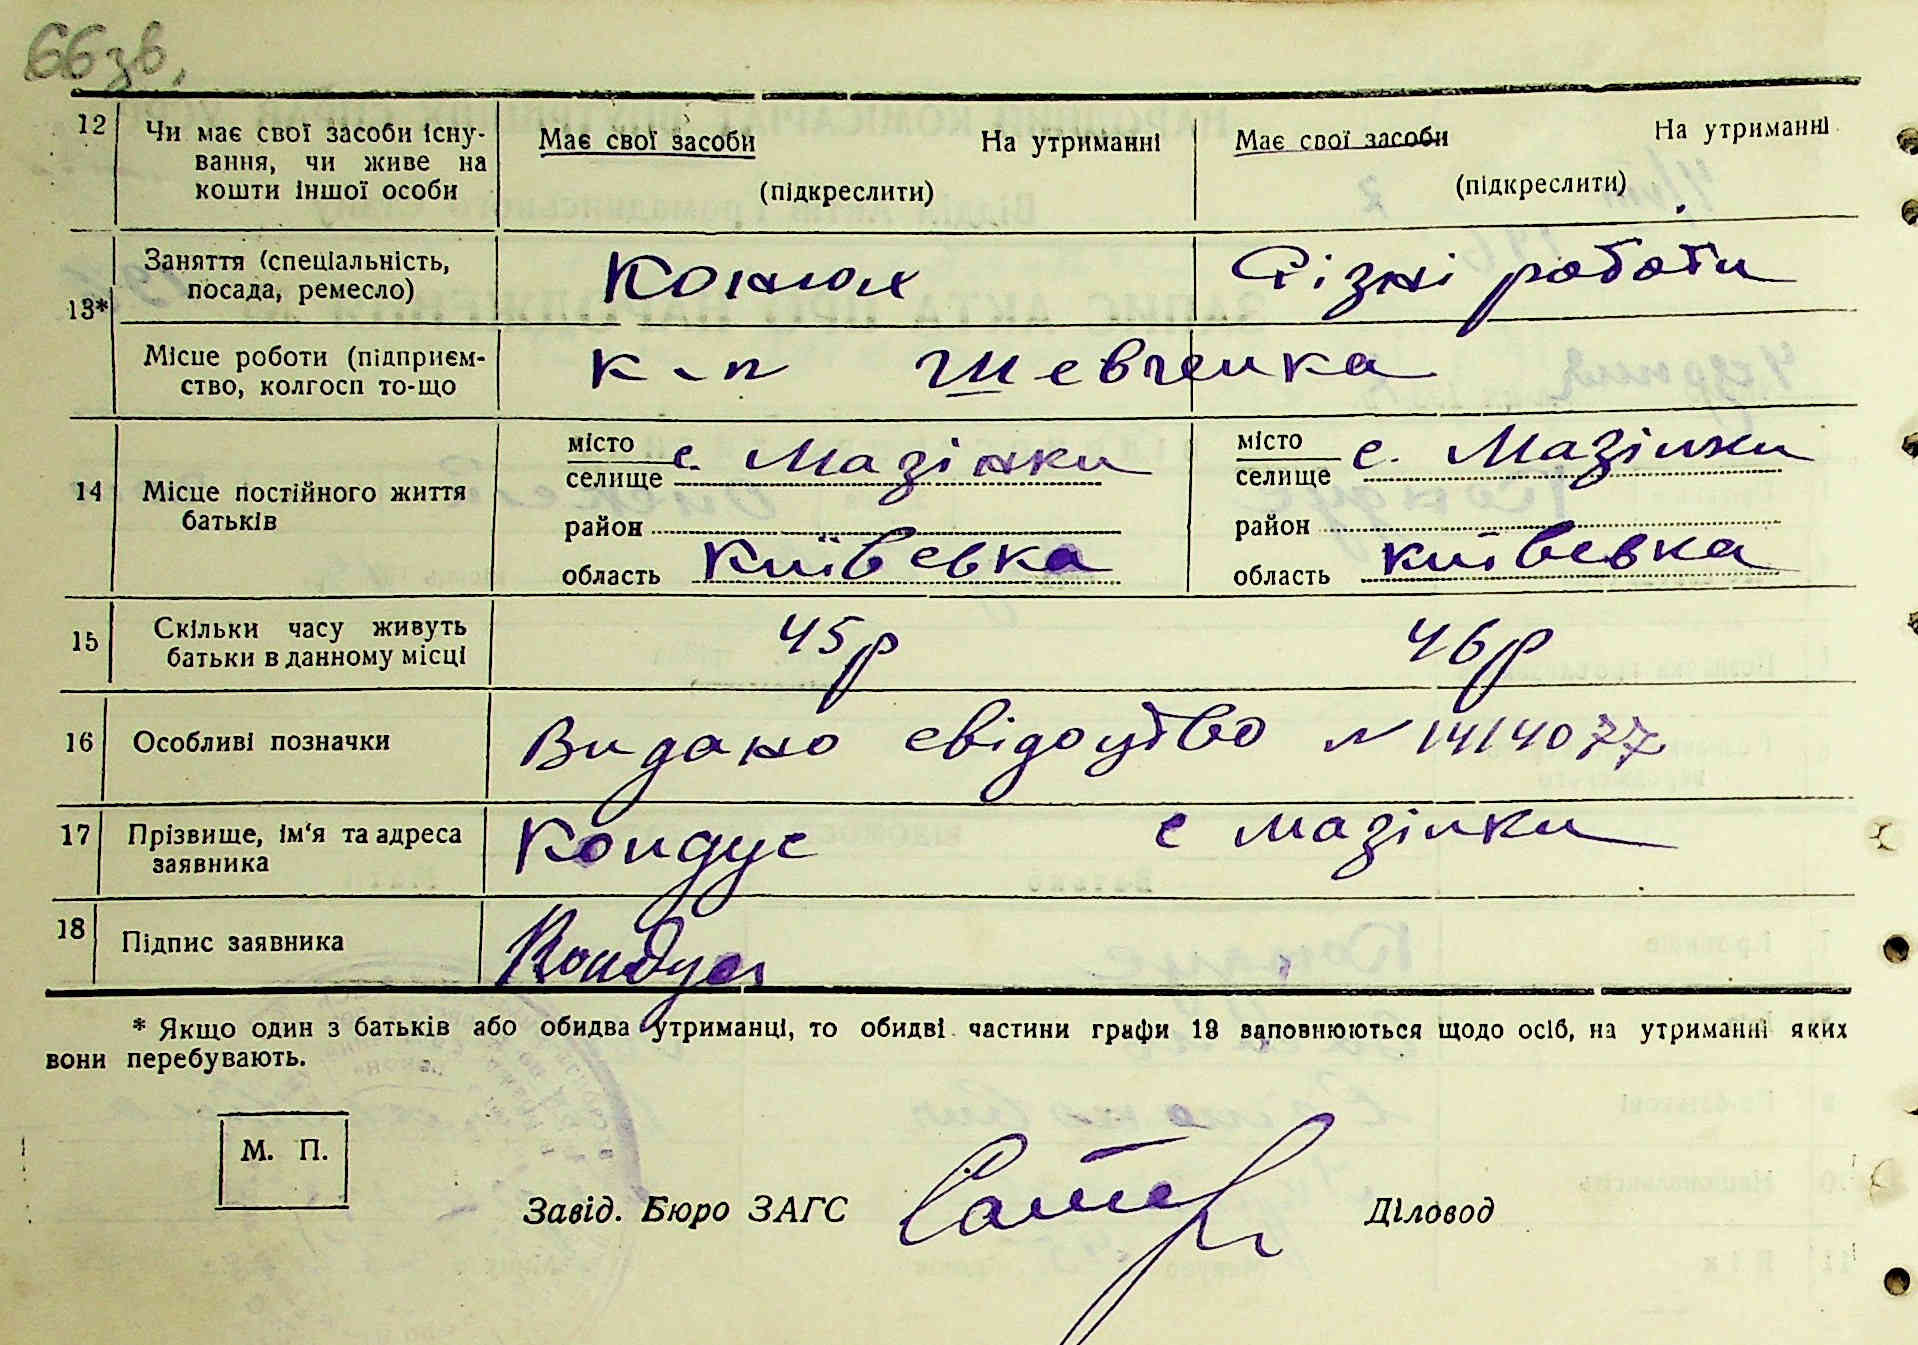 66 зв.
12 Чи має свої засоби існу- Має свої засоби На утриманні Має свої засоби На утриманні
вання, чи живе на
кошти іншої особи (підкреслити) (підкреслити)
13* Заняття (спеціальність, Конюх Різні роботи
посада, ремесло)
Місце роботи (підприєм- к-п Шевченка
ство, колгосп то-що
14 Місце постійного життя місто с. Мазінки місто с. Мазінки
батьків селище селище
район район
область київсвка область київсвка
15 Скільки часу живуть 45р 46р
батьки в данному місці
16 Особливі позначки Видано свідоцтво N 1414077
17 Прізвище, ім'я та адреса Кондус с Мазінки
заявника
18 Підпис заявника Кондус
* Якщо один з батьків або обидва утриманці, то обидві частини графи 13 заповнюються щодо осіб, на утриманні яких
вони перебувають.
М. П.
Завід. Бюро ЗАГС Діловод